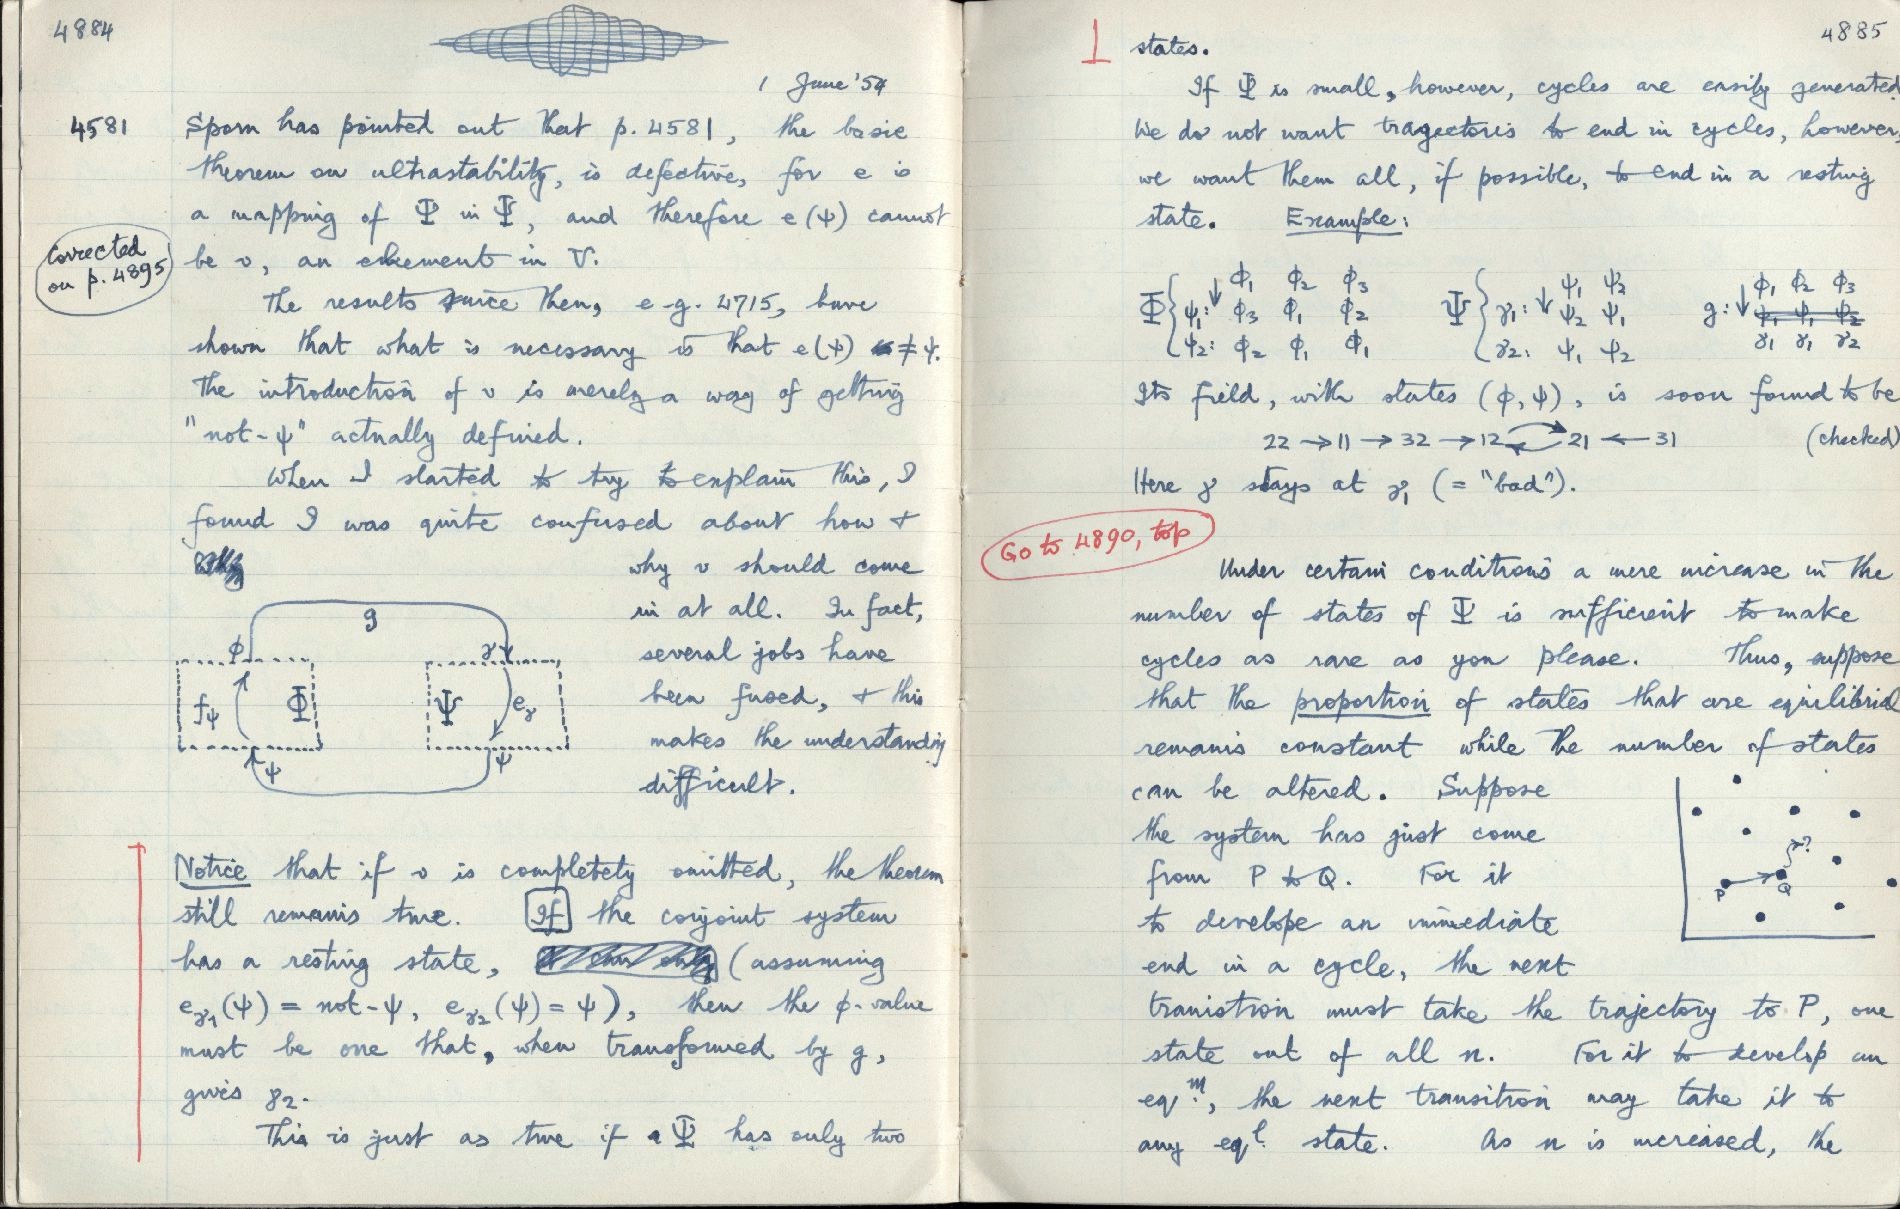 4884
1 June '54
4581
Sporn has pointed out that p. 4581, the basic
theorem on ultrastability, is defective, for e is
a mapping of Ψ in Ψ, and therefore e(ψ) cannot
be v, an element in V.
Corrected
on p. 4895
The results since then, e.g. 4715, have
shown that what is necessary is that e(ψ) ≠ ψ.
The introduction of v is merely a way of getting
"not-ψ" actually defined.
When I started to try to explain this, I
found I was quite confused about how +
why v should come
in at all. In fact,
several jobs have
been fused, + this
makes the understanding
difficult.
g
ϕ γ
fψ Φ Ψ eγ
ψ ψ
Notice that if v is completely omitted, the theorem
still remains true. If the conjoint system
has a resting state, (assuming
eγ1(ψ) = not-ψ, eγ2(ψ) = ψ), then the ϕ-value
must be one that, when transformed by g,
gives γ2.
This is just as true if Ψ has only two
4885
states.
If Ψ is small, however, cycles are easily generated
We do not want tragectoris to end in cycles, however,
we want them all, if possible, to end in a resting
state. Example:
Φ { ↓ ϕ1 ϕ2 ϕ3 Ψ { ↓ ψ1 ψ2 g: ↓ ϕ1 ϕ2 ϕ3
ψ1: ϕ3 ϕ1 ϕ2 γ1: ψ2 ψ1 ψ1 ψ1 ψ2
ψ2: ϕ2 ϕ1 ϕ1 γ2: ψ1 ψ2 γ1 γ1 γ2
Its field, with states (ϕ, ψ), is soon found to be
22 → 11 → 32 → 12 ⇄ 21 ← 31 (checked)
Here γ stays at γ1 (= "bad").
Go to 4890, top
Under certain conditions a mere increase in the
number of states of Ψ is sufficient to make
cycles as rare as you please. Thus, suppose
that the proportion of states that are equilibrial
remains constant while the number of states
can be altered. Suppose
the system has just come
from P to Q. For it
to develope an immediate
end in a cycle, the next
transition must take the trajectory to P, one
state out of all n. For it to develop an
eqm., the next transition may take it to
any eql. state. As n is increased, the
P Q ?